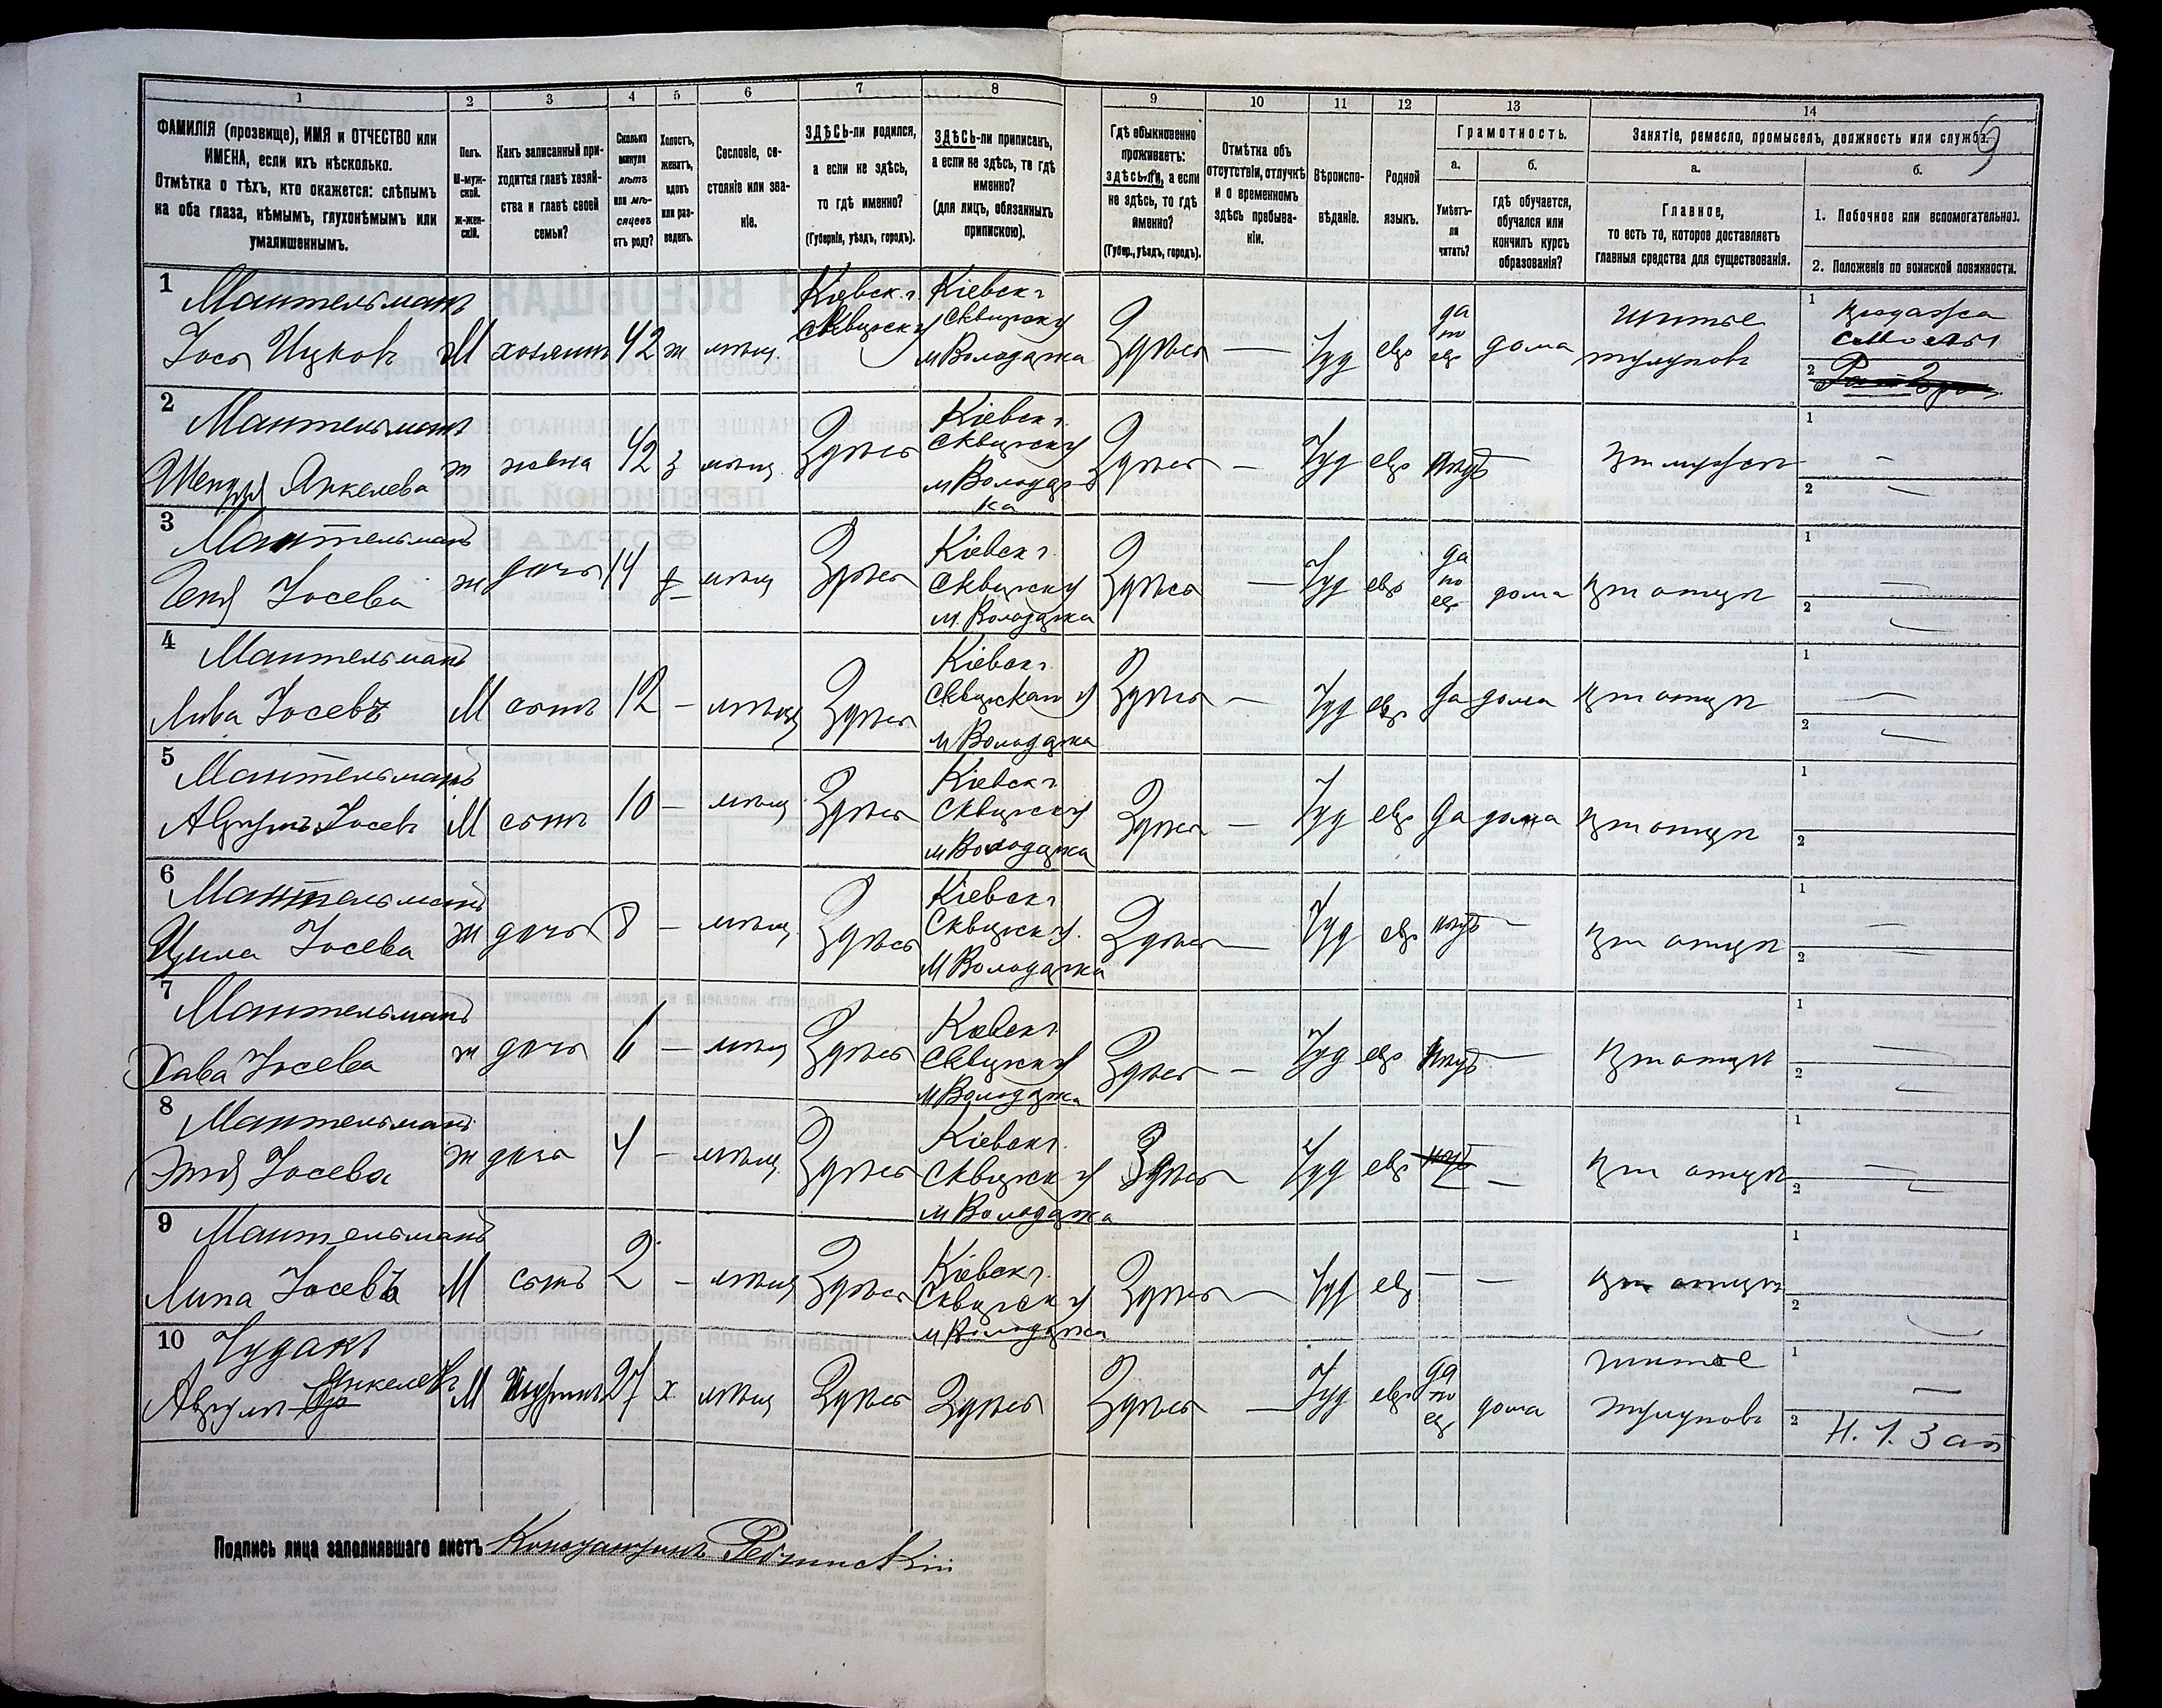 1
2
3
4
5
6
7
8
9
10
11
12
13
14
ФАМИЛІЯ (прозвище), ИМЯ и ОТЧЕСТВО или
ИМЕНА, если ихъ нѣсколько.
Отмѣтка о тѣхъ, кто окажется: слѣпымъ
на оба глаза, нѣмымъ, глухонѣмымъ или
умалишеннымъ.
Полъ.
М-муж-
ской.
Ж-жен-
скій.
Какъ записанный при-
ходится главѣ хозяй-
ства и главѣ своей
семьи?
Сколько
минуло
лѣтъ
или мѣ-
сяцевъ
отъ роду?
Холостъ,
женатъ,
вдовъ
или раз-
веденъ.
Сословіе, со-
стояніе или зва-
ніе.
ЗДѢСЬ-ли родился,
а если не здѣсь,
то гдѣ именно?
(Губернія, уѣздъ, городъ).
ЗДѢСЬ-ли приписан,
а если не здѣсь, то гдѣ
именно?
(для лицъ, обязанныхъ
припискою).
Гдѣ обыкновенно
проживаетъ:
здѣсь-ли, а если
не здѣсь, то гдѣ
именно?
(Губер., уѣздъ, городъ).
Отмѣтка объ
отсутствіи, отлучкѣ
и о временномъ
здѣсь пребыва-
ніи.
Вѣроиспо-
вѣданіе.
Родной
языкъ.
Грамотность.
а.
Умѣетъ-
ли
читать?
б.
гдѣ обучается,
обучался или
кончилъ курсъ
образованія?
Занятіе, ремесло, промыселъ, должность или служба.
9
а.
Главное,
то есть то, которое доставляетъ
главныя средства для существованія.
б.
1. Побочное или вспомогательное.
2. Положеніе по воинской повинности.
1 Мантельманъ
Іось Ицковъ М хозяинъ 42 ж мѣщ.
Кіевск. г.
Сквирск у
Кіевск г
Сквирск у
м Володарка
Здѣсь — Іуд евр
да
по
евр
дома
Шитье
тулуповъ
1 продажа
смолы
2
2 Мантельманъ
Шендля Янкелева ж жена 42 з мѣщ Здѣсь
Кіевск г.
Сквирск у
м Володар
ка
Здѣсь — Іуд евр нѣтъ —
При мужѣ
1 —
2 —
3 Мантельманъ
Геня Іосева ж дочь 14 мѣщ Здѣсь
Кіевск г
Сквирск у
м. Володарка
Здѣсь — Іуд евр
да
по
евр
дома при отцѣ
1 —
2 —
4 Мантельманъ
Лива Іосевъ М сынъ 12 — мѣщ Здѣсь
Кіевск г.
Сквирск у
м Володарка
Здѣсь — Іуд евр да дома при отцѣ
1 —
2 —
5 Мантельманъ
Аврумъ Іосевъ М сынъ 10 — мѣщ Здѣсь
Кіевск г.
Сквирск у
м Володарка
Здѣсь — Іуд евр да дома при отцѣ
1
2
6 Мантельманъ
Цила Іосева ж дочь 8 — мѣщ. Здѣсь
Кіевск г
Сквирск у.
м Володарка
Здѣсь — Іуд евр нѣтъ — при отцѣ
1 —
2 —
7 Мантельманъ
Хава Іосева ж дочь 6 — мѣщ Здѣсь
Кіевск г.
Сквирск у
м Володарка
Здѣсь — Іуд евр нѣтъ — при отцѣ
1 —
2 —
8 Мантельманъ
Этя Іосева ж дочь 4 — мѣщ Здѣсь
Кіевск г.
Сквирск у
м Володарка
Здѣсь — Іуд евр нѣтъ — при отцѣ
1 —
2 —
9 Мантельманъ
Липа Іосевъ М сынъ 2 — мѣщ Здѣсь
Кіевск г.
Сквирск у
м Володарка
Здѣсь — Іуд евр — — при отцѣ
1
2 —
10 Чудакъ
Янкелевъ
Аврумъ М 27 х мѣщ Здѣсь Здѣсь Здѣсь — Іуд евр
да
по
евр
дома
шитье
тулуповъ
1 —
2
Подпись лица заполнявшаго листъ